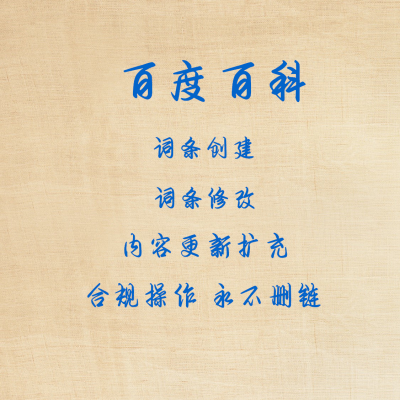 百度百科
词条创建
词条修改
内容更新扩充
合规操作 永不删链